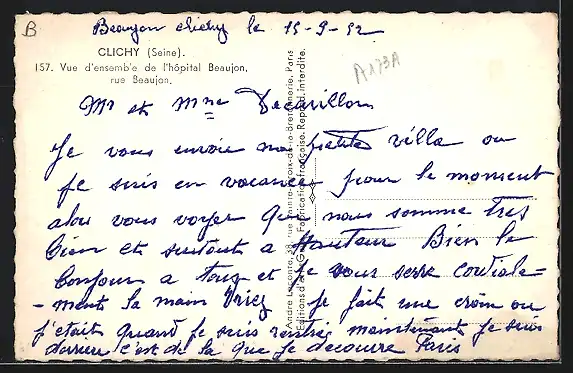 B
Beaujon clichy le 15-9-52
CLICHY (Seine).
157. Vue d'ensemble de l'hôpital Beaujon,
rue Beaujon.
A173A
Mr et Mme
Je vous envoie ma petite villa ou
je suis en vacance pour le moment
alor vous voyer que nous somme tres
bien et surtout a Hauteur Bien le
bonjour a tous et je vous serre cordiale=
- ments la main je fait une croix ou
j'etait quand je suis rentré maintenant je suis
derriere c'est de la que je decouvre Paris
André Leconte, 38, rue Sainte-Croix-de-la-Bretonnerie, Paris
Fabrication française. Reprod. interdite.